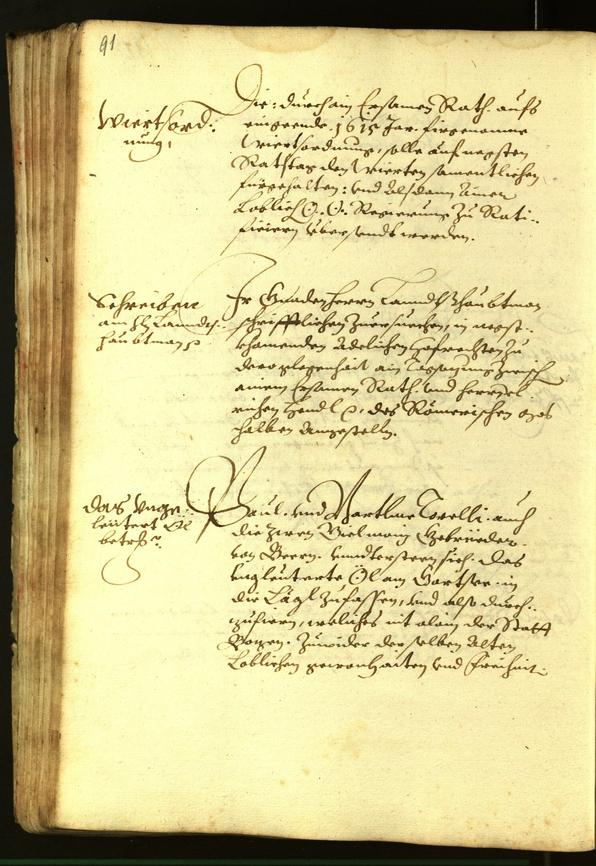 91
Wiertsord:
nung,
Die: durch ain Ersamen Rath. aufs
eingeende .1615 Jar. firgenomne
Wiertsordnung, solle auf negsten
Ratstag den Wierten samentlichen
fürgehalten: und alsdann ainer
Loblich O: Ö: Regierung zu Rati:
ficiern ybersendt werden.
Schreiben
am Hn Lanndts:
haubtman
Ir Gnaden Herrn Lanndtshaubtman
schrifftlichen zuersuechen, in negst
khomenden Adelichen Hofrechten zu
dero glegenheit ain Tagsazung zwisch
ainem Ersamen Rath. und Herr
richen Hendl des Römerischen
halben angestelln.
Das unge:
leitert Öl
betreff:
Paul. und Barthlme Torelli. auch
die zwen Gebrüeder.
von Beern. unndersteen sich. Das
ungleuterte Öl am Gartsee. in
die Lägl zufassen, und also durch:
zufiern, weliches nit alain der Statt
Bozen. zuwider derselben alten
Loblichen gewonhaiten und Freiheit: